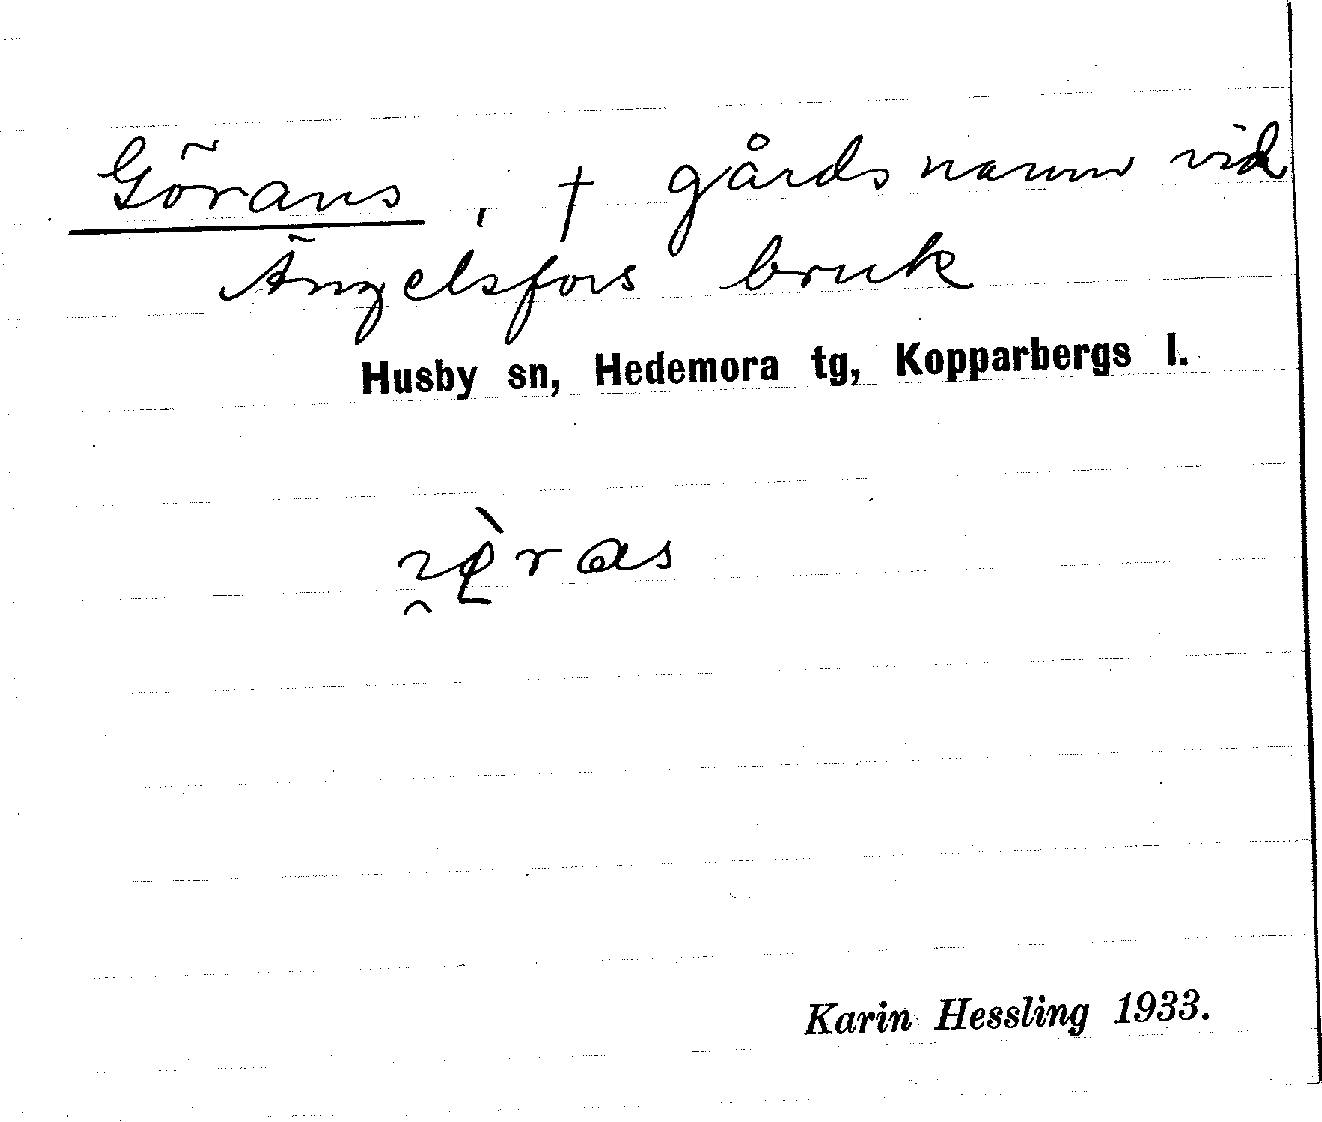 Görans, † gårdsnamn vid
Ängelsfors bruk
Husby sn, Hedemora tg, Kopparbergs l.
Karin Hessling 1933.